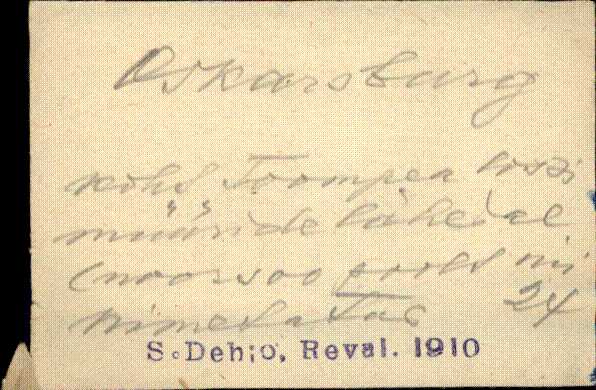 Oskarsburg
koht Toompea lossi
müüride lähedal
(noorsoo poolt nii
nimetatud 24
S. Dehio, Reval. 1910